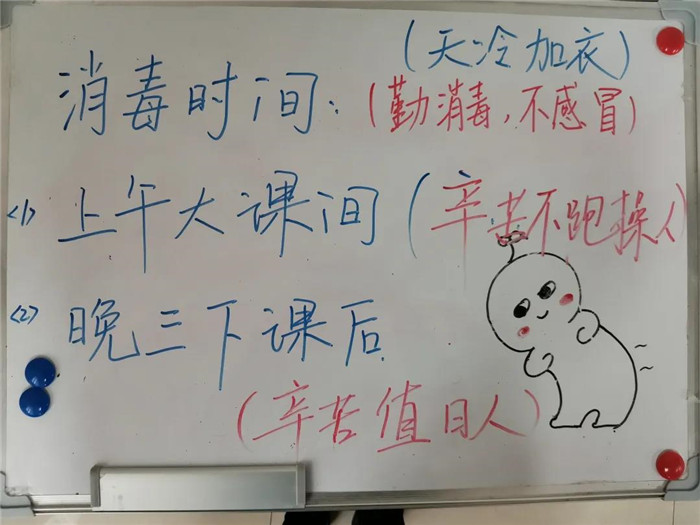 (天冷加衣)
消毒时间:(勤消毒,不感冒)
<1> 上午大课间(辛苦不跑操人
<2> 晚三下课后
(辛苦值日人)